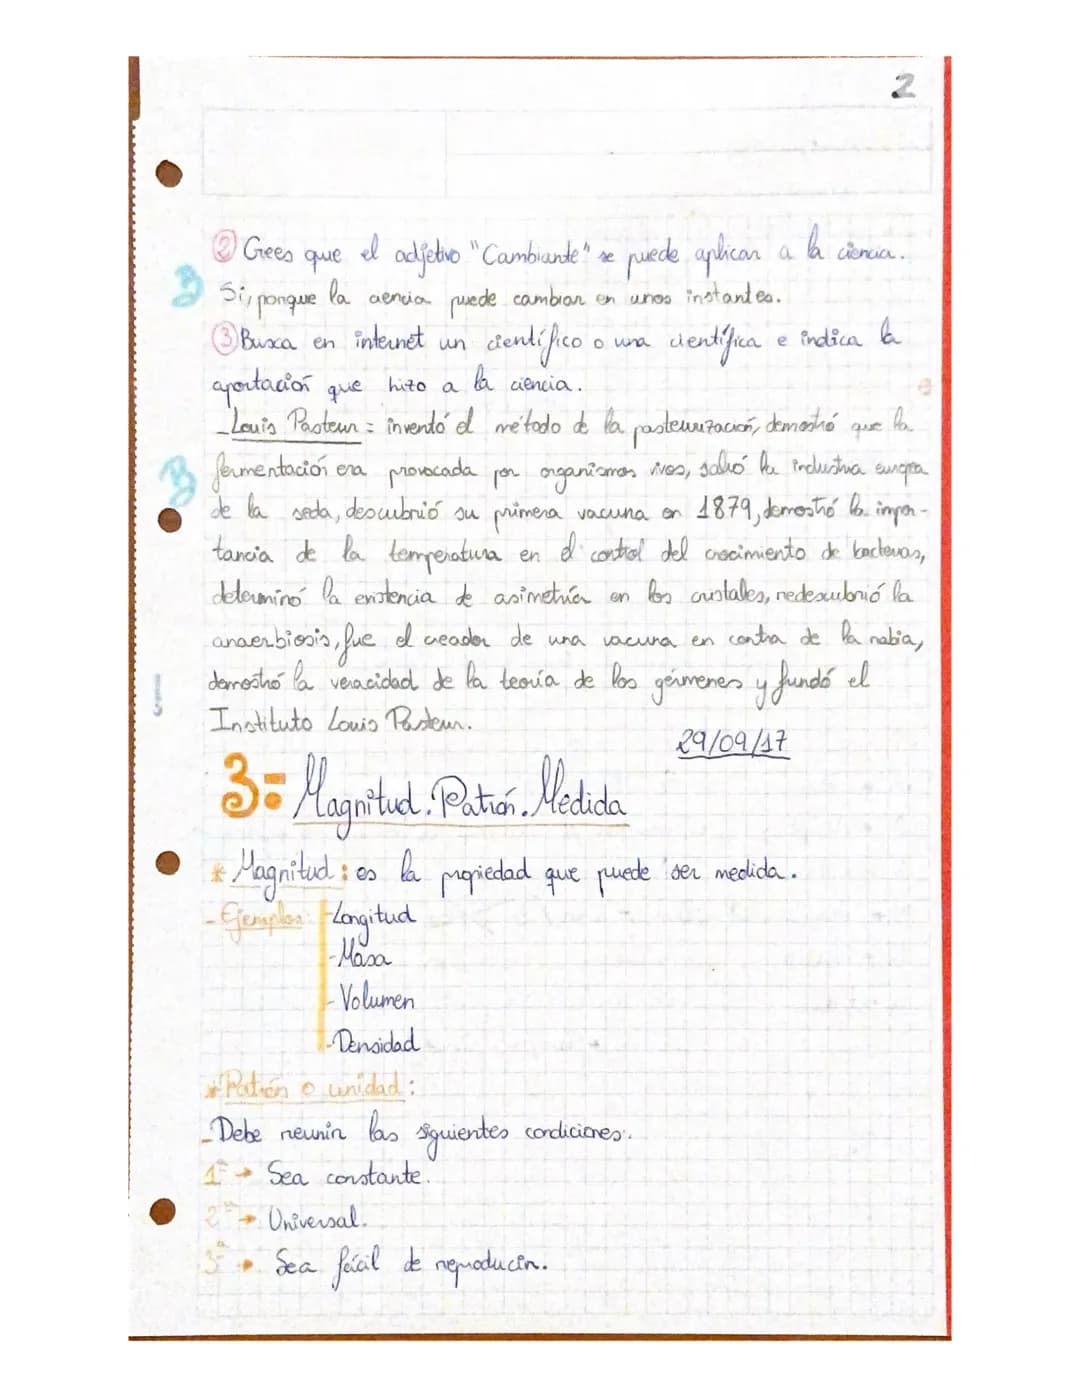 2
② Crees que el adjetivo "Cambiante" se puede aplicar a la ciencia.
Si, porque la ciencia puede cambiar en unos instantes.
③ Busca en internet un científico o una científica e indica la
aportación que hizo a la ciencia.
- Louis Pasteur = inventó el método de la pasteurización, demostró que la
fermentación era provocada por organismos vivos, salvó la industria europa
de la seda, descubrió su primera vacuna en 1879, demostró la impor-
tancia de la temperatura en el control del crecimiento de bacterias,
determinó la existencia de asimetría en los cristales, redescubrió la
anaerbiosis, fue el creador de una vacuna en contra de la rabia,
demostró la veracidad de la teoría de los gérmenes y fundó el
Instituto Louis Pasteur.
29/09/17
3= Magnitud. Patrón. Medida
* Magnitud: es la propiedad que puede ser medida.
- Ejemplos: - Longitud
- Masa
- Volumen
- Densidad
* Patrón o unidad:
- Debe reunir las siguientes condiciones:
1ª → Sea constante.
2ª → Universal.
3ª → Sea fácil de reproducir.